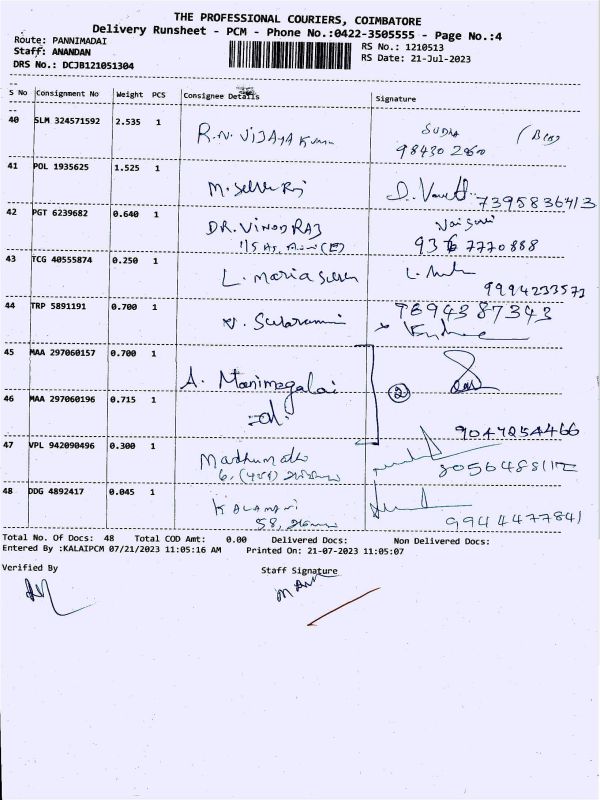 THE PROFESSIONAL COURIERS, COIMBATORE
Delivery Runsheet - PCM - Phone No.:0422-3505555 - Page No.:4
Route: PANNIMADAI
RS No.: 1210513
Staff: ANANDAN
RS Date: 21-Jul-2023
DRS No.: DCJB121051304
S No Consignment No Weight PCS Consignee Details Signature
40 SLM 324571592 2.535 1 R.N. VIJAYA Kumar
SUDHA
41 POL 1935625 1.525 1 M. Selva Raj
7395836413
42 PGT 6239682 0.640 1 DR. VINOD RAJ
7770888
43 TCG 40555874 0.250 1 L. Maria Selvan
9994233573
44 TRP 5891191 0.700 1
7894387343
45 MAA 297060157 0.700 1 A. Manimegalai
2
46 MAA 297060196 0.715 1
9047254466
47 VPL 942090496 0.300 1 Madhumathi
48 DDG 4892417 0.045 1 KALAMANI
58,
9944477841
Total No. Of Docs: 48 Total COD Amt: 0.00 Delivered Docs: Non Delivered Docs:
Entered By :KALAIPCM 07/21/2023 11:05:16 AM Printed On: 21-07-2023 11:05:07
Verified By Staff Signature